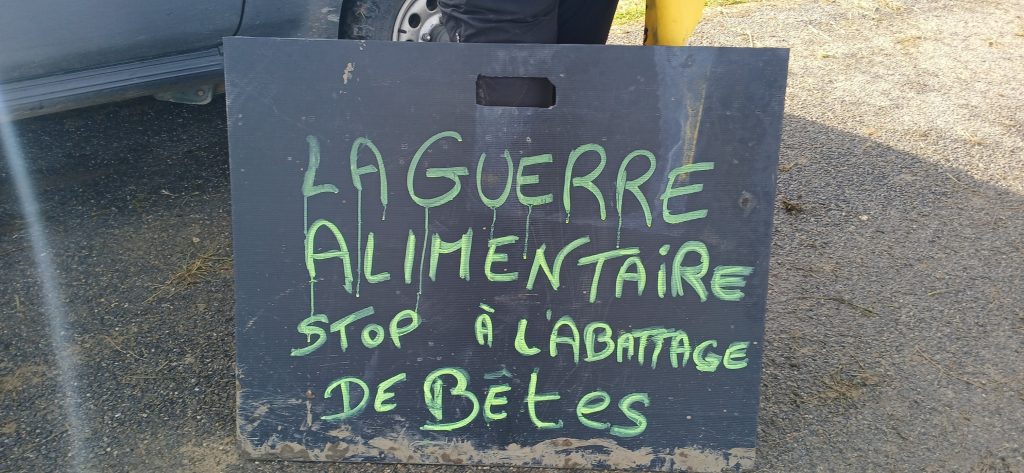 LA GUERRE
ALIMENTAiRE
STOP À L'ABATTAGE
DE BÊtes